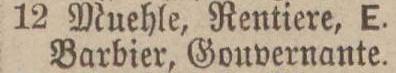 12 Muehle, Rentiere, E.
Barbier, Gouvernante.